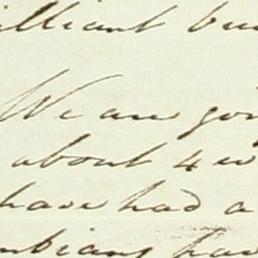 illiant bu
We are goi
about 4 w
have had a
mbians hav